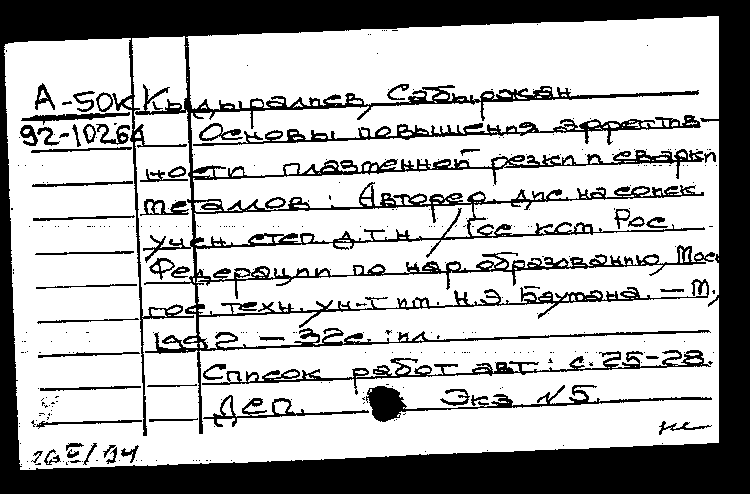 А-50К Кыдыралиев, Сабыржан
92-1026А Основы повышения эффектив-
ности плазменной резки и сварки
металлов : Автореф. дис. на соиск.
учен. степ. д.т.н. / Гос ком. Рос.
Федерации по нар. образованию, Моск
гос. техн. ун-т им. Н.Э. Баумана. — М.,
1992. — 32с. : ил.
Список работ авт : с. 25-28.
ДСП. Экз N5.